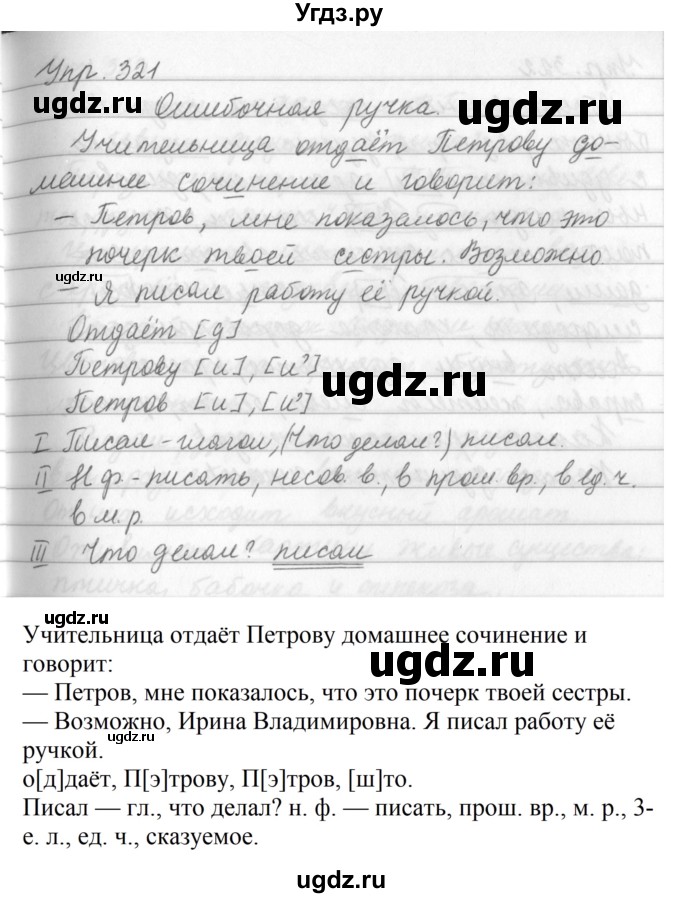 Угдз.ру
Упр. 321
Ошибочная ручка.
Учительница отдаёт Петрову до-
машнее сочинение и говорит:
– Петров, мне показалось, что это
почерк твоей сестры. Возможно
– Я писал работу её ручкой.
Отдаёт [д]
Петрову [и], [и']
Петров [и], [и']
I Писал – глагол, (Что делал?) писал.
II Н.ф. – писать, несов. в., в прош. вр., в ед. ч.
в м. р.
III Что делал? писал
Учительница отдаёт Петрову домашнее сочинение и
говорит:
— Петров, мне показалось, что это почерк твоей сестры.
— Возможно, Ирина Владимировна. Я писал работу её
ручкой.
о[д]даёт, П[э]трову, П[э]тров, [ш]то.
Писал — гл., что делал? н. ф. — писать, прош. вр., м. р., 3-
е. л., ед. ч., сказуемое.
ugdz.ru
ugdz.ru
ugdz.ru
ugdz.ru
ugdz.ru
ugdz.ru
ugdz.ru
ugdz.ru
ugdz.ru